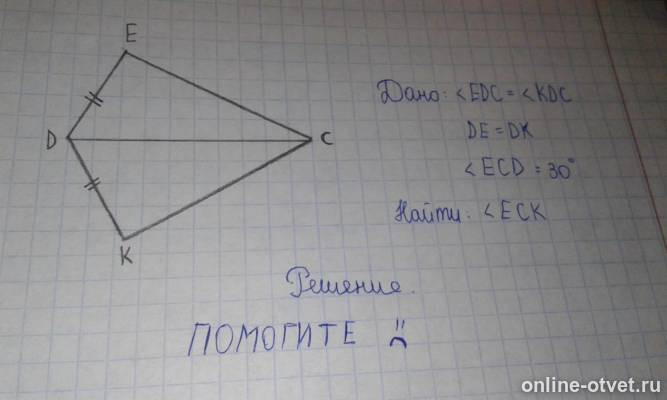 E
D
C
K
Дано: ∠EDC = ∠KDC
DE = DK
∠ECD = 30°
Найти: ∠ECK
Решение.
ПОМОГИТЕ
online-otvet.ru